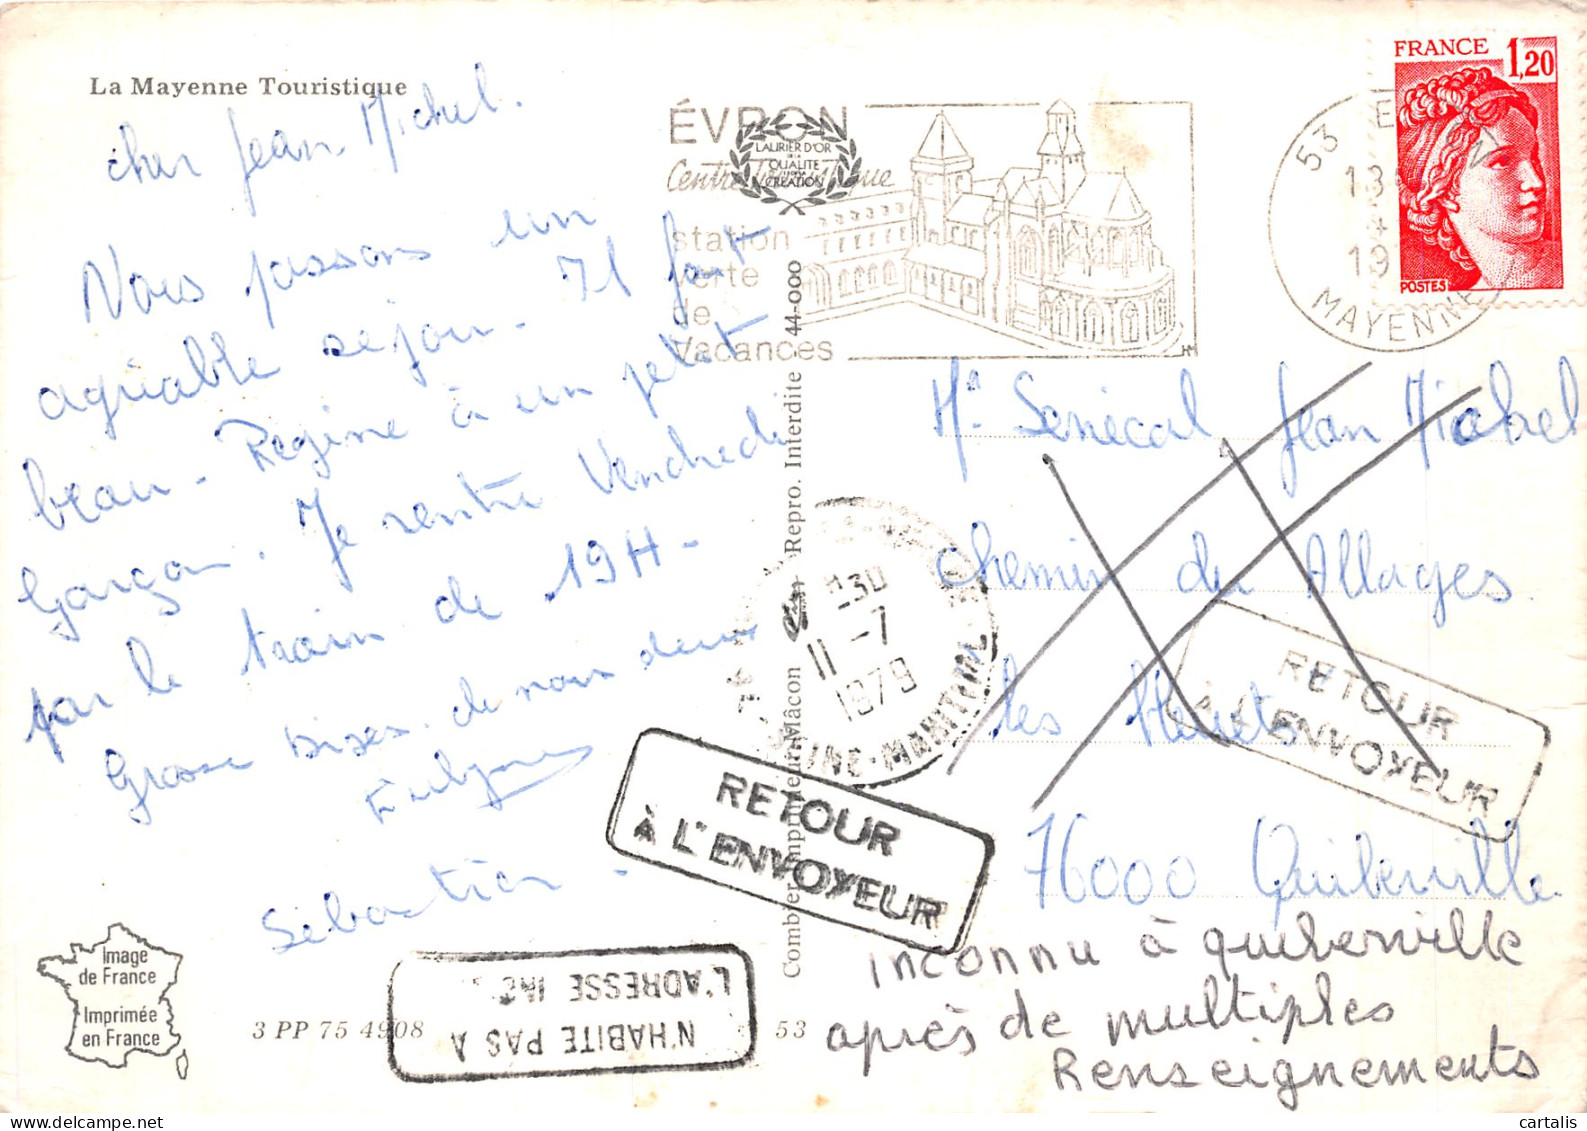 La Mayenne Touristique
cher Jean Michel.
Nous passons un
agréable séjour. Il fait
beau. Régine à un petit
Garçon. Je rentre Vendredi
par le train de 19H.
Grosse bises de nous deux
Sébastien.
Image
de France
Imprimée
en France
3 PP 75 4908
53
N'HABITE PAS À
L'ADRESSE
Combier imprimeur Mâcon
Repro. Interdite 44-000
ÉVRON
LAURIER D'OR
DE LA
QUALITE
CREATION
station
verte
de
vacances
HM
53
MAYENNE
FRANCE 1,20
POSTES
30
11-7
1979
Mr Senécal Jean Michel
chemin des Allages
les
76000 Quiberville
RETOUR
À L'ENVOYEUR
RETOUR
À L'ENVOYEUR
inconnu à quiberville
après de multiples
Renseignements
cartalis